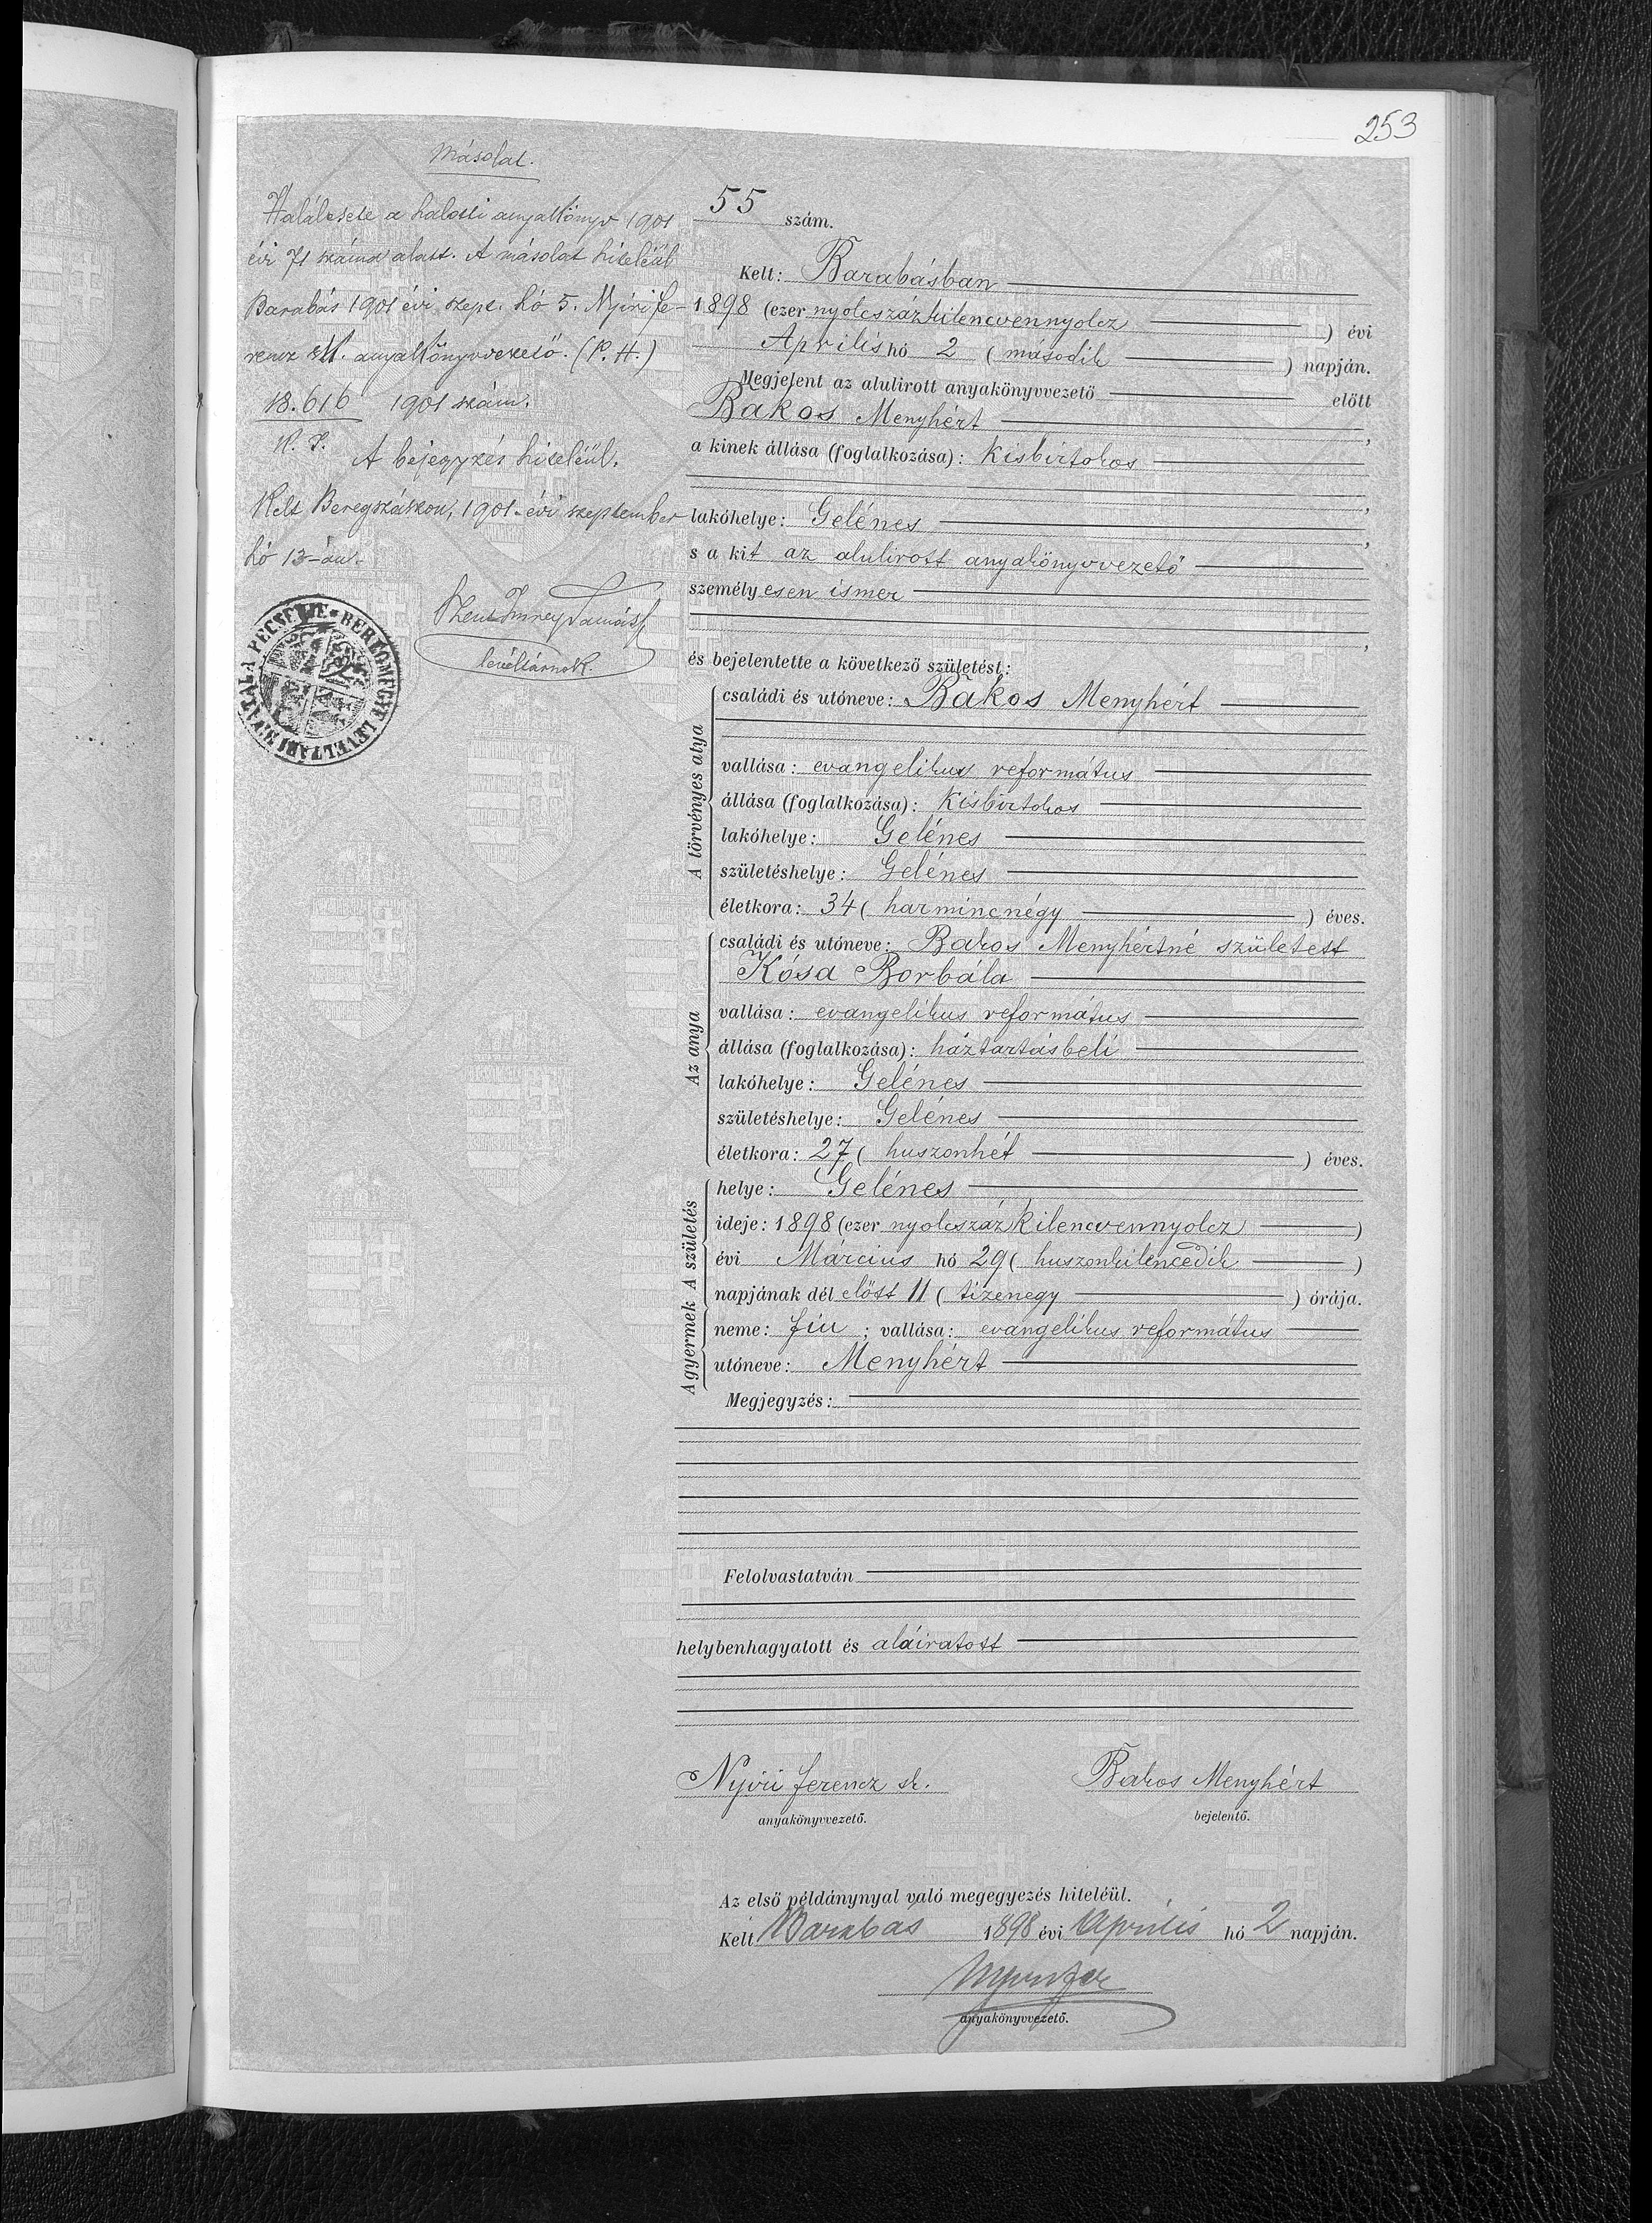 253
Másolat.
Halálesete a halotti anyakönyv 1901
évi 71 száma alatt. A másolat hiteléül
Barabás 1901 évi szept. hó 5. Nyiri Fe-
rencz sk. anyakönyvvezető. (P. H.)
18.616 1901 szám.
A bejegyzés hiteléül.
Kelt Beregszászon, 1901. évi szeptember
hó 13-án.
levéltárnok.
BEREGMEGYE LEVÉLTÁRI HIVATALA PECSÉTJE
55 szám.
Kelt: Barabásban
1898 (ezer nyolczszázkilenczvennyolcz ) évi
Április hó 2 ( második ) napján.
Megjelent az alulirott anyakönyvvezető előtt
Bakos Menyhért ,
a kinek állása (foglalkozása): kisbirtokos
,
lakóhelye: Gelénes ,
s a kit az alulirott anyakönyvvezető
személyesen ismer
,
és bejelentette a következő születést:
A törvényes atya
családi és utóneve: Bakos Menyhért
vallása: evangelikus református
állása (foglalkozása): kisbirtokos
lakóhelye: Gelénes
születéshelye: Gelénes
életkora: 34 ( harmincnégy ) éves.
Az anya
családi és utóneve: Bakos Menyhértné született
Kósa Borbála
vallása: evangelikus református
állása (foglalkozása): háztartásbeli
lakóhelye: Gelénes
születéshelye: Gelénes
életkora: 27 ( huszonhét ) éves.
A születés
helye: Gelénes
ideje: 1898 (ezer nyolczszáz kilencvennyolcz )
évi Március hó 29 ( huszonkilencedik )
napjának dél előtt 11 ( tizenegy ) órája.
A gyermek
neme: fiu ; vallása: evangelikus református
utóneve: Menyhért
Megjegyzés:
Felolvastatván
helybenhagyatott és aláiratott
Nyiri Ferencz sk. Bakos Menyhért
anyakönyvvezető. bejelentő.
Az első példánynyal való megegyezés hiteléül.
Kelt Barabás 1898 évi Április hó 2 napján.
anyakönyvvezető.